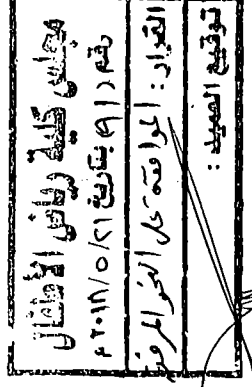 مجلس كلية رياض الأطفال
رقم (٩١) بتاريخ ٢٠١٨/٥/٢١م
القرار: الموافقة على النحو المرفق
توقيع العميد: